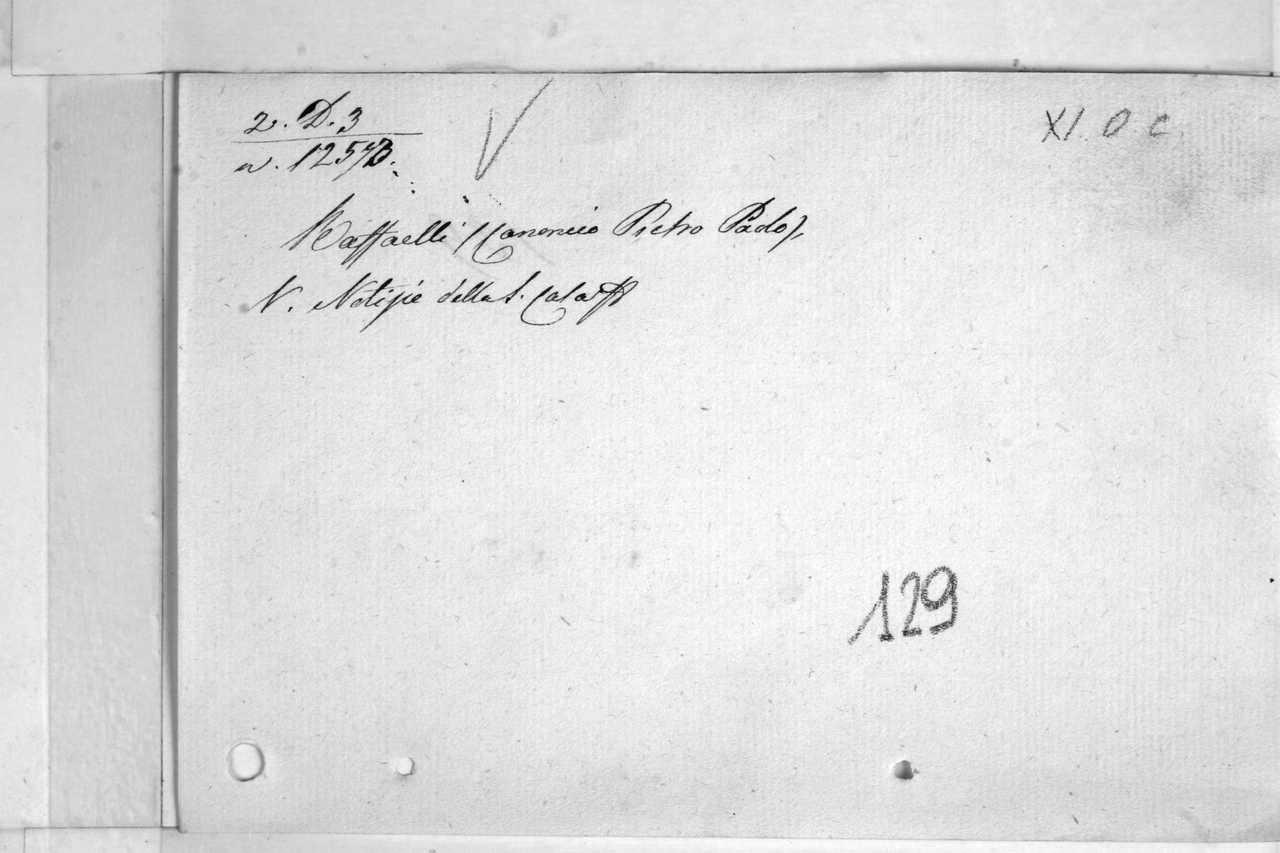 2. D. 3
XI. O C
n. 1257B.
Raffaelli (Canonico Pietro Paolo),
V. Notizie della S. Casa
129